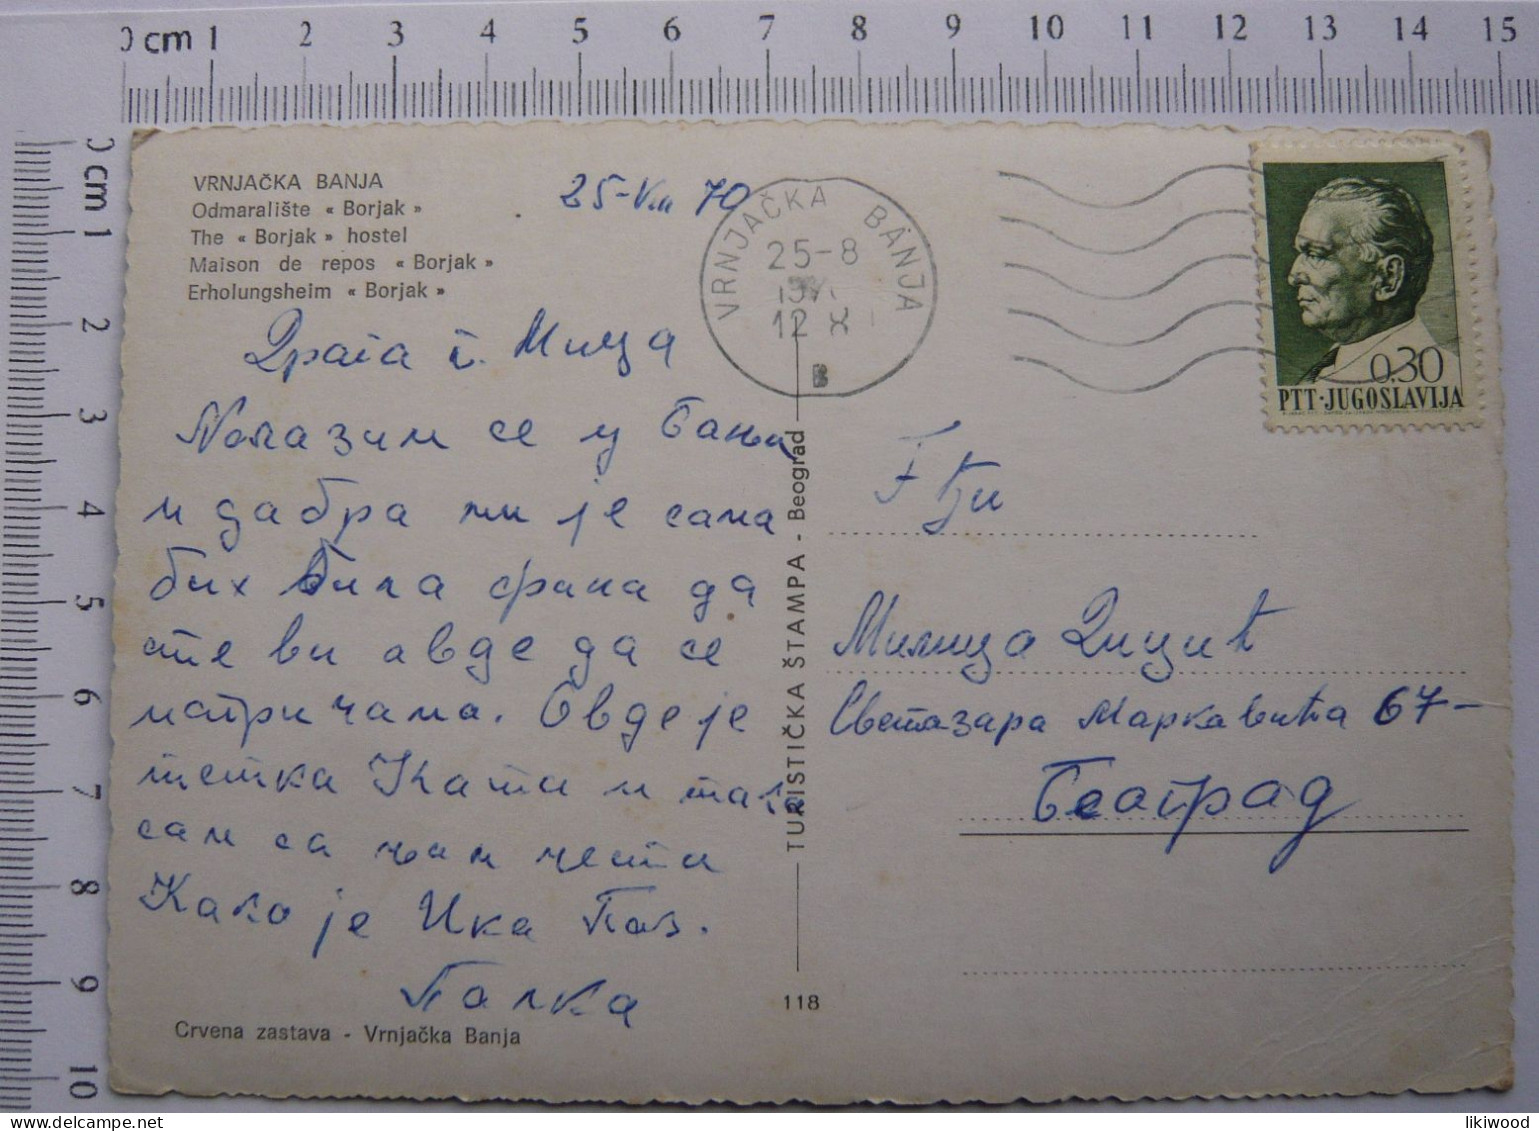 0 cm 1 2 3 4 5 6 7 8 9 10 11 12 13 14 15
0 cm 1 2 3 4 5 6 7 8 9 10
VRNJAČKA BANJA
Odmaralište « Borjak »
The « Borjak » hostel
Maison de repos « Borjak »
Erholungsheim « Borjak »
25-VIII 70
VRNJAČKA BANJA
25-8
12 X
B
0.30
PTT·JUGOSLAVIJA
Драга г. Мица
Налазим се у Бањи
и дабра ми је сама
бих била срина да
сте ви авде да се
испричама. Овде је
тетка Ката и тако
сам са њам честа
Како је Ика Поз.
Палка
TURISTIČKA ŠTAMPA - Beograd
118
Г ђи
Милица Дицић
Светазара Маркавића 67-
Београд
Crvena zastava - Vrnjačka Banja
likiwood